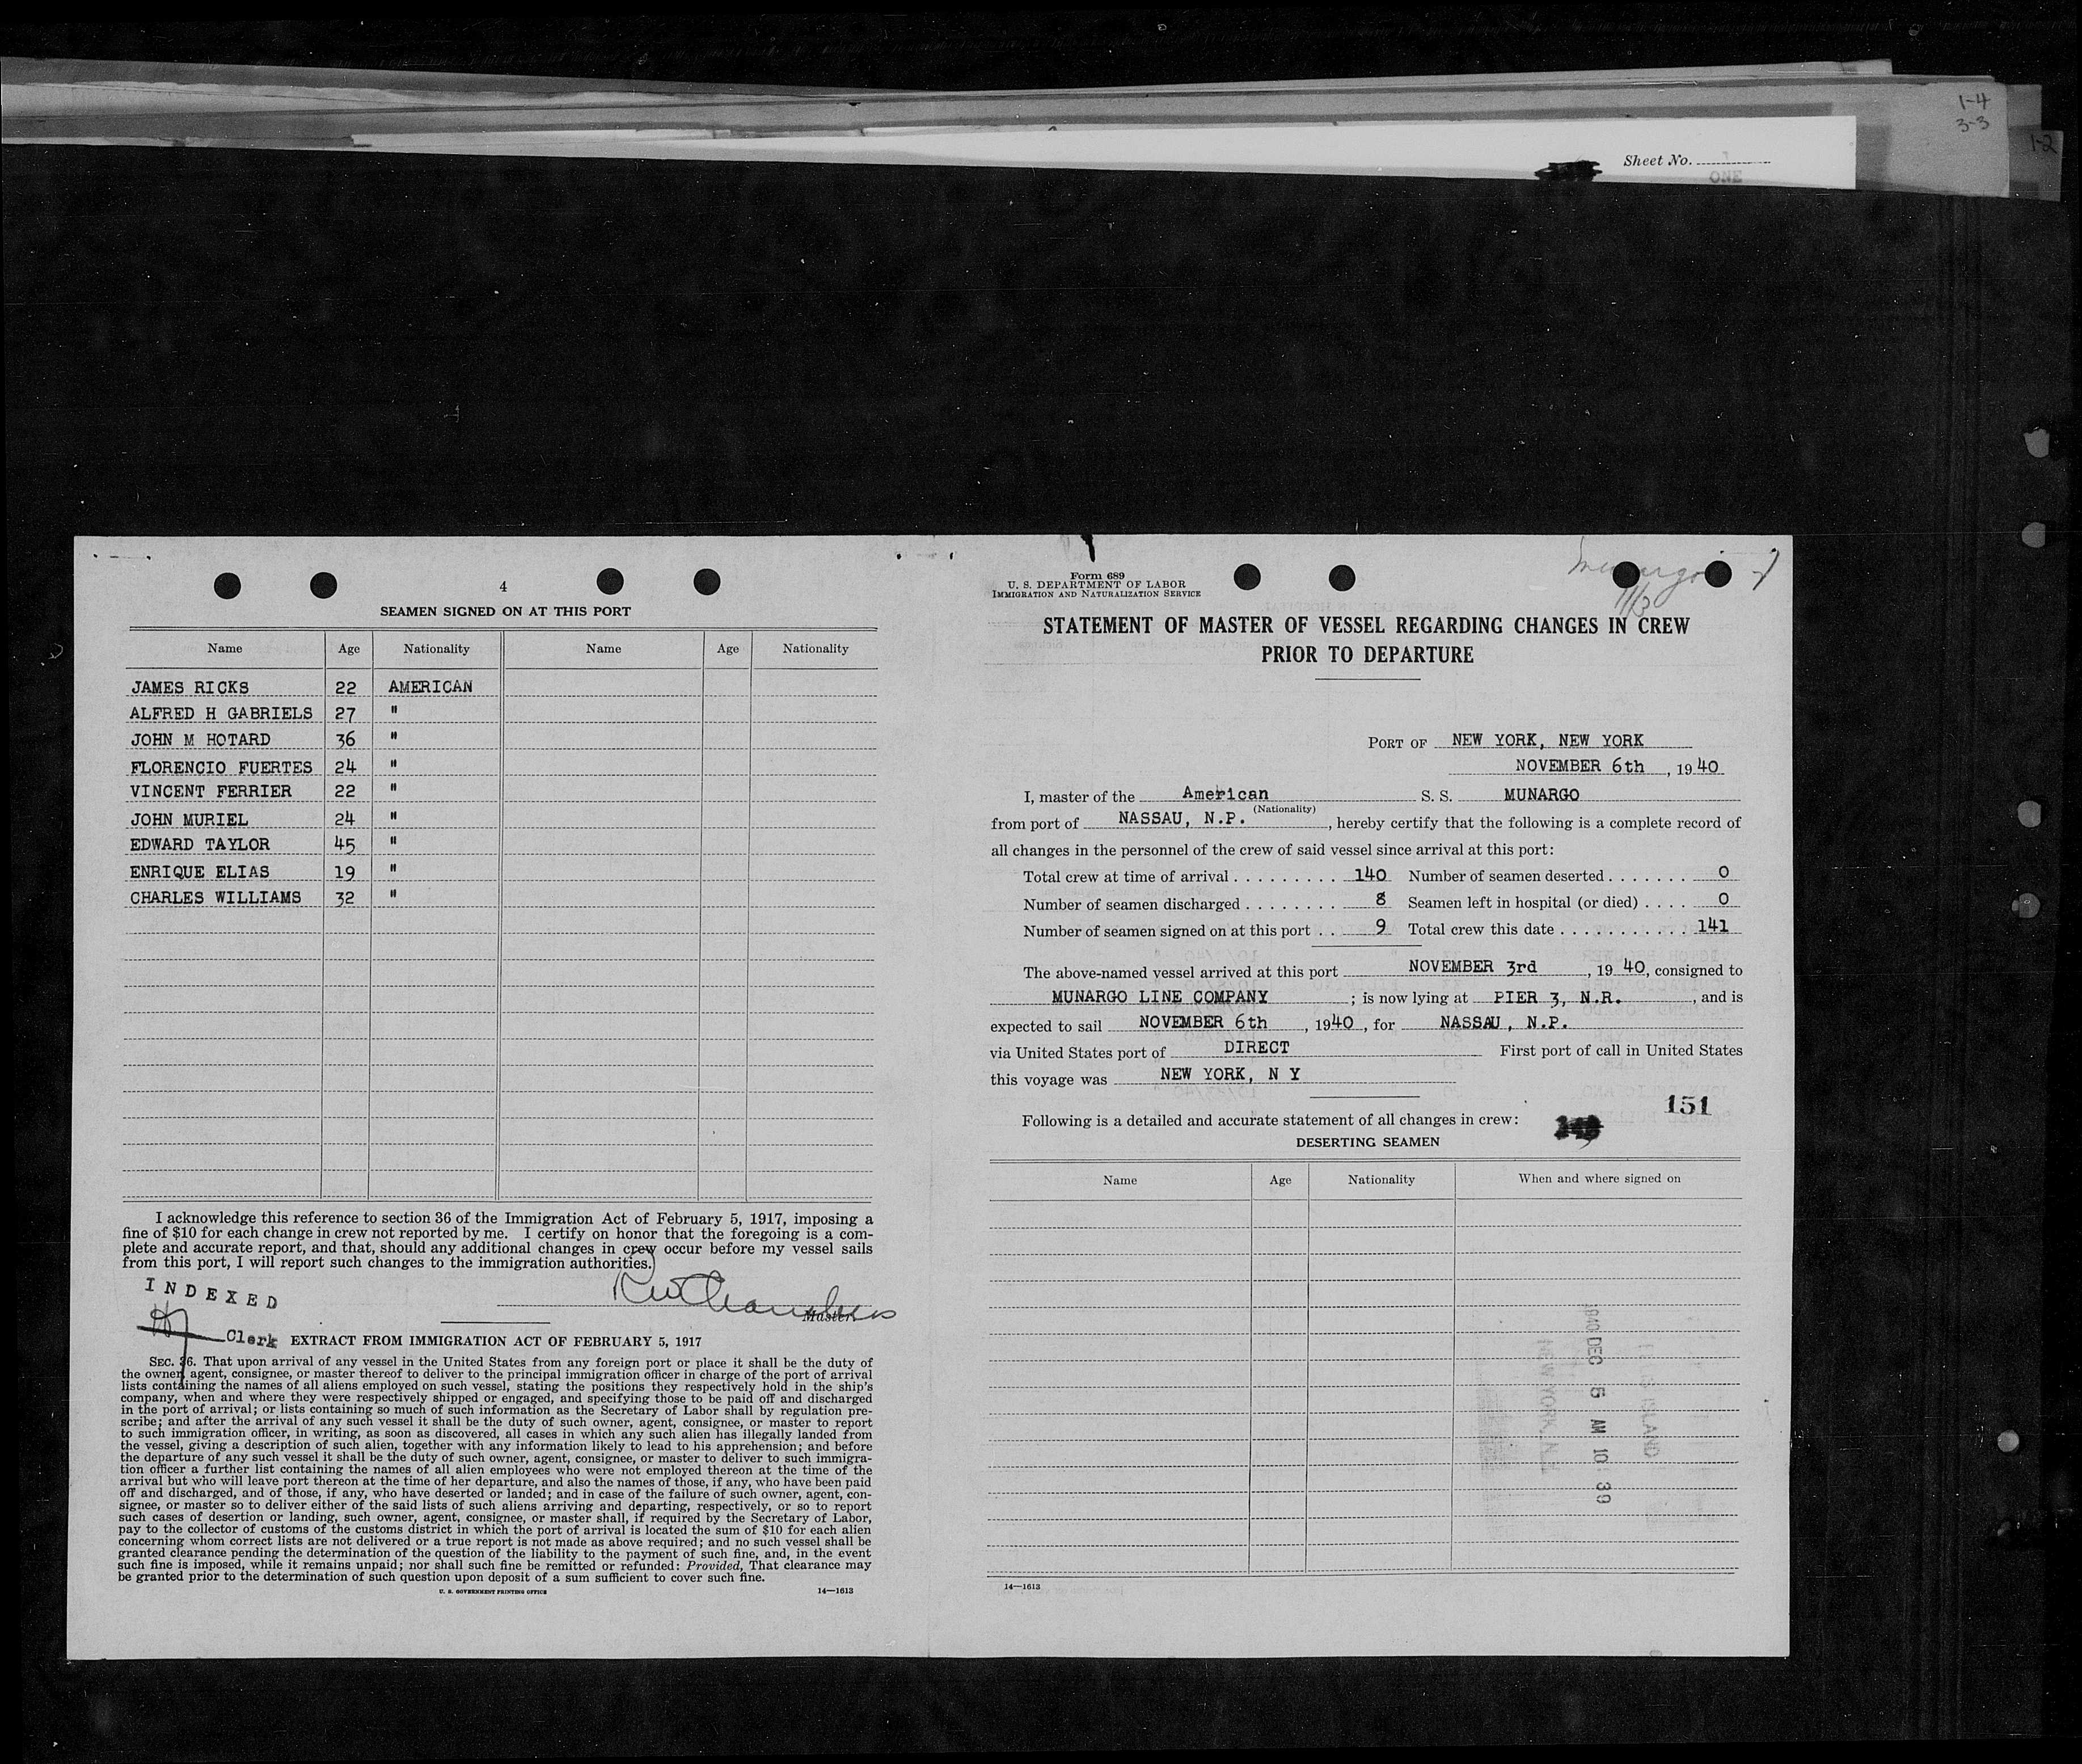 1-4
3-3
1-2
Sheet No.
ONE
4
SEAMEN SIGNED ON AT THIS PORT
Name Age Nationality Name Age Nationality
JAMES RICKS 22 AMERICAN
ALFRED H GABRIELS 27 "
JOHN M HOTARD 36 "
FLORENCIO FUERTES 24 "
VINCENT FERRIER 22 "
JOHN MURIEL 24 "
EDWARD TAYLOR 45 "
ENRIQUE ELIAS 19 "
CHARLES WILLIAMS 32 "
I acknowledge this reference to section 36 of the Immigration Act of February 5, 1917, imposing a
fine of $10 for each change in crew not reported by me. I certify on honor that the foregoing is a com-
plete and accurate report, and that, should any additional changes in crew occur before my vessel sails
from this port, I will report such changes to the immigration authorities.
INDEXED
Master
Clerk
EXTRACT FROM IMMIGRATION ACT OF FEBRUARY 5, 1917
SEC. 36. That upon arrival of any vessel in the United States from any foreign port or place it shall be the duty of
the owner, agent, consignee, or master thereof to deliver to the principal immigration officer in charge of the port of arrival
lists containing the names of all aliens employed on such vessel, stating the positions they respectively hold in the ship's
company, when and where they were respectively shipped or engaged, and specifying those to be paid off and discharged
in the port of arrival; or lists containing so much of such information as the Secretary of Labor shall by regulation pre-
scribe; and after the arrival of any such vessel it shall be the duty of such owner, agent, consignee, or master to report
to such immigration officer, in writing, as soon as discovered, all cases in which any such alien has illegally landed from
the vessel, giving a description of such alien, together with any information likely to lead to his apprehension; and before
the departure of any such vessel it shall be the duty of such owner, agent, consignee, or master to deliver to such immigra-
tion officer a further list containing the names of all alien employees who were not employed thereon at the time of the
arrival but who will leave port thereon at the time of her departure, and also the names of those, if any, who have been paid
off and discharged, and of those, if any, who have deserted or landed; and in case of the failure of such owner, agent, con-
signee, or master so to deliver either of the said lists of such aliens arriving and departing, respectively, or so to report
such cases of desertion or landing, such owner, agent, consignee, or master shall, if required by the Secretary of Labor,
pay to the collector of customs of the customs district in which the port of arrival is located the sum of $10 for each alien
concerning whom correct lists are not delivered or a true report is not made as above required; and no such vessel shall be
granted clearance pending the determination of the question of the liability to the payment of such fine, and, in the event
such fine is imposed, while it remains unpaid; nor shall such fine be remitted or refunded: Provided, That clearance may
be granted prior to the determination of such question upon deposit of a sum sufficient to cover such fine.
U. S. GOVERNMENT PRINTING OFFICE 14—1613
Form 689
U. S. DEPARTMENT OF LABOR
IMMIGRATION AND NATURALIZATION SERVICE
Munargo
11/3
STATEMENT OF MASTER OF VESSEL REGARDING CHANGES IN CREW
PRIOR TO DEPARTURE
PORT OF NEW YORK, NEW YORK
NOVEMBER 6th, 1940
I, master of the American S. S. MUNARGO
(Nationality)
from port of NASSAU, N.P., hereby certify that the following is a complete record of
all changes in the personnel of the crew of said vessel since arrival at this port:
Total crew at time of arrival . . . . . . . . . 140 Number of seamen deserted . . . . . . . 0
Number of seamen discharged . . . . . . . . 8 Seamen left in hospital (or died) . . . . 0
Number of seamen signed on at this port . . 9 Total crew this date . . . . . . . . . . . 141
The above-named vessel arrived at this port NOVEMBER 3rd, 1940, consigned to
MUNARGO LINE COMPANY; is now lying at PIER 3, N.R., and is
expected to sail NOVEMBER 6th, 1940, for NASSAU, N.P.
via United States port of DIRECT First port of call in United States
this voyage was NEW YORK, N Y
151
Following is a detailed and accurate statement of all changes in crew:
DESERTING SEAMEN
Name Age Nationality When and where signed on
1940 DEC 5 AM 10 39
NEW YORK, N.Y.
ELLIS ISLAND
14—1613